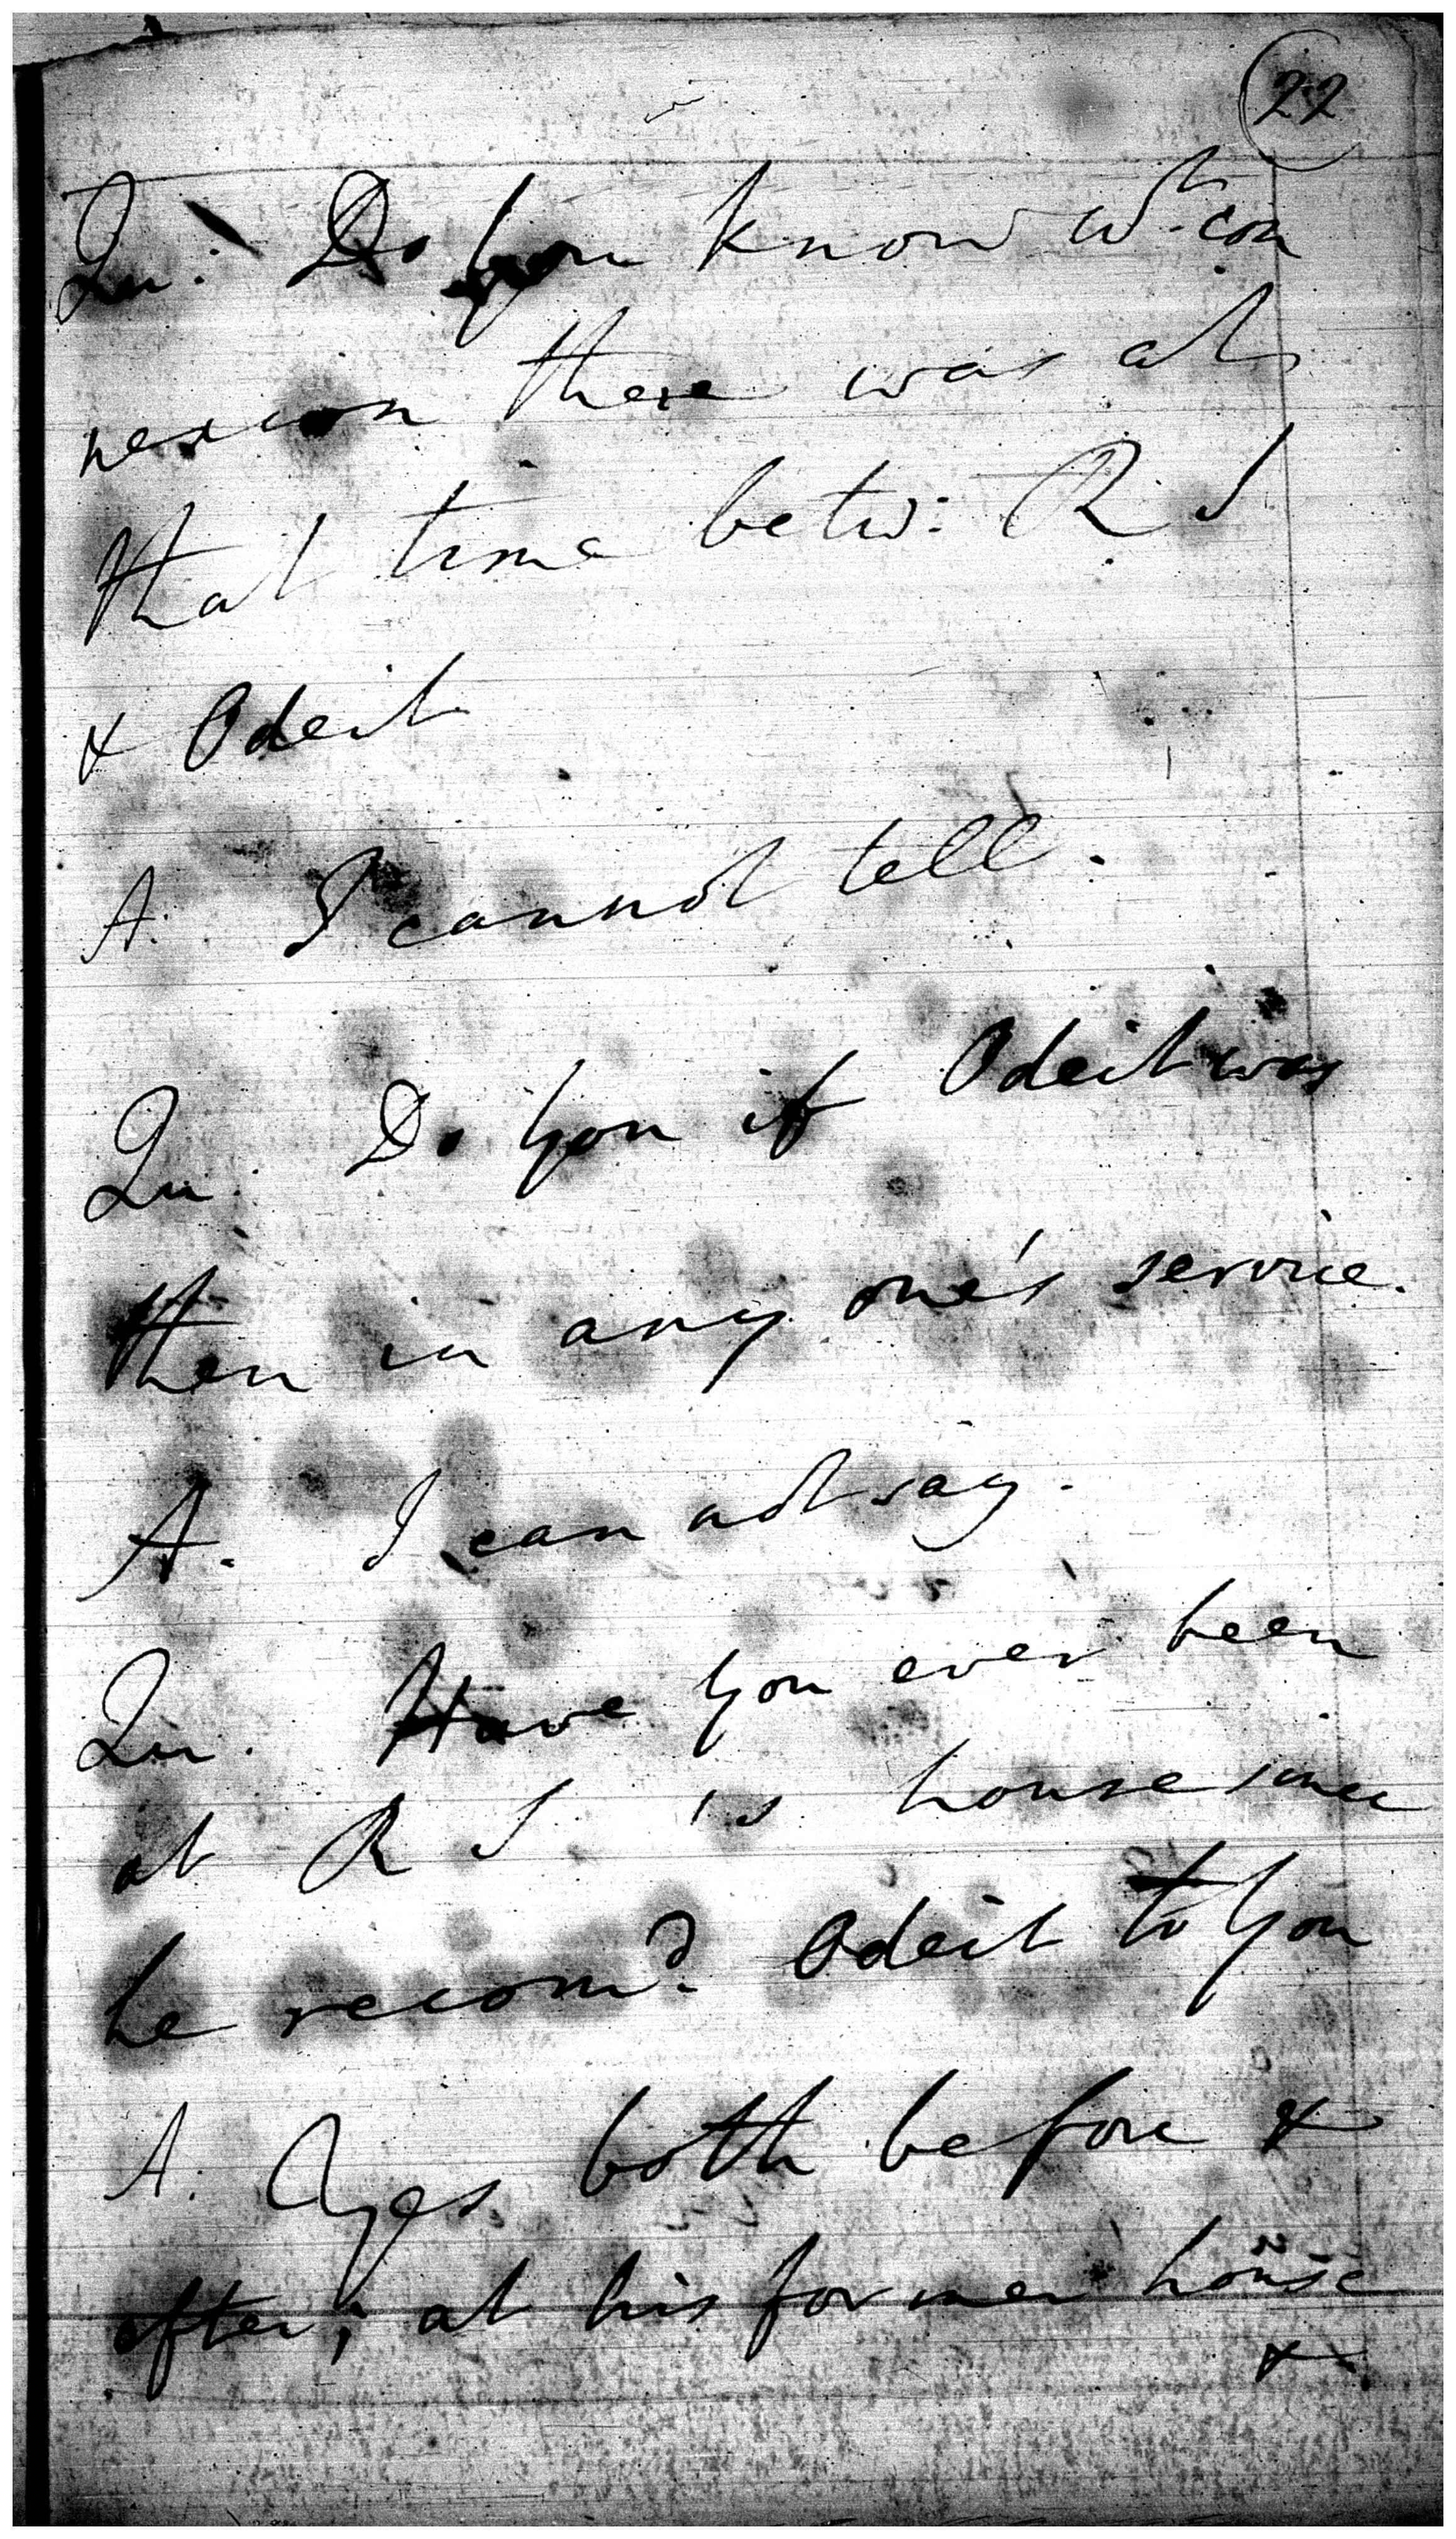 22
Qu: Do you know wt. con
nexion there was at
that time betw: R J
& Odeit
A. I cannot tell.
Qu. Do you if Odeit was
then in any one's service.
A. I can not say.
Qu. Have you ever been
at R J 's house since
he recomd. Odeit to you
A. Yes both before &
after; at his former house
&